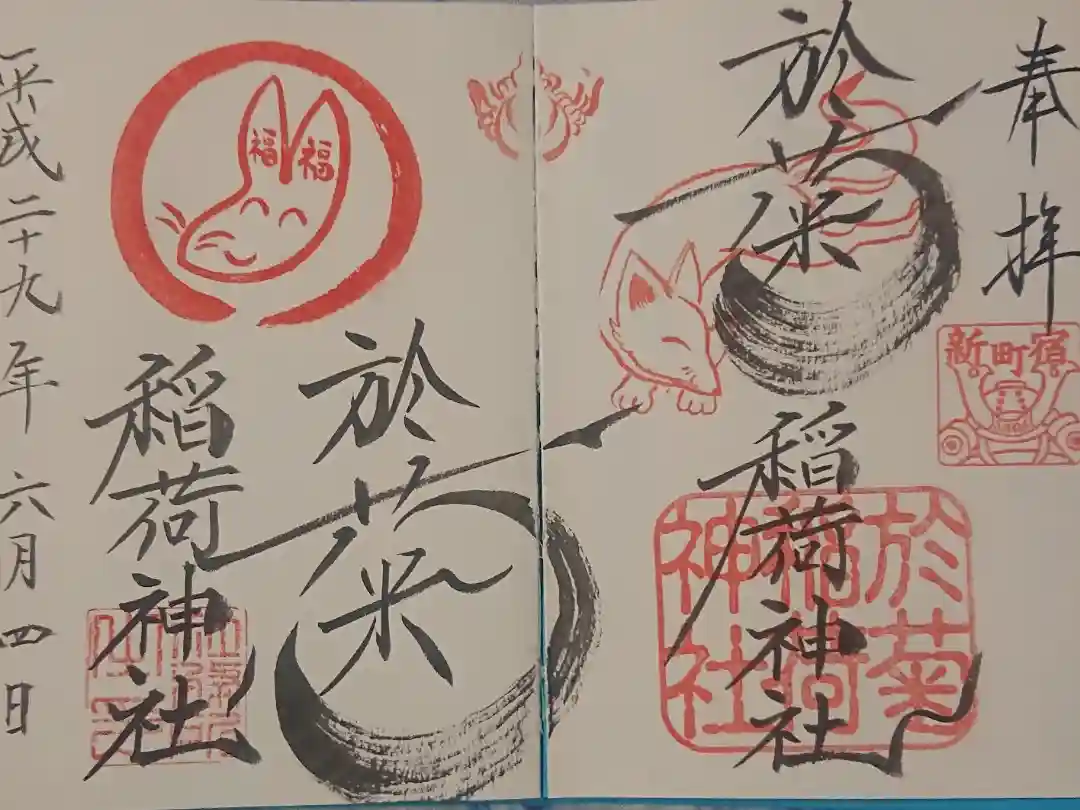 奉拝
新町宿
於菊稲荷神社
於菊
稲荷
神社
於菊
稲荷神社
福 福
平成二十九年 六月 四日